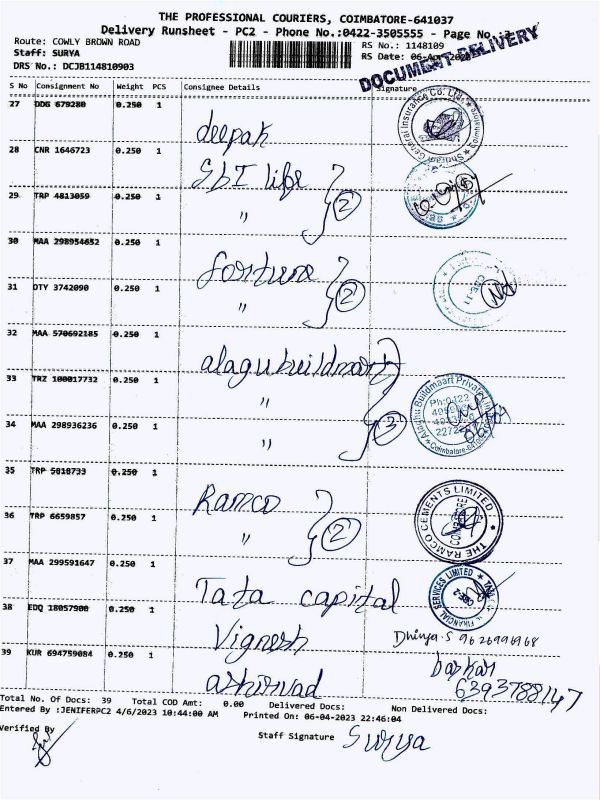 THE PROFESSIONAL COURIERS, COIMBATORE-641037
Delivery Runsheet - PC2 - Phone No.:0422-3505555 - Page No.
Route: COWLY BROWN ROAD
RS No.: 1148109
Staff: SURYA
RS Date: 06-Apr-2023
DRS No.: DCJB114810903
DOCUMENT DELIVERY
S No Consignment No Weight PCS Consignee Details Signature
27 DDG 679280 0.250 1
deepak
General Insurance Co. Ltd.
28 CNR 1646723 0.250 1
SbI life
29 TRP 4813059 0.250 1
" 2
30 MAA 298954652 0.250 1
fortune
31 DTY 3742090 0.250 1
" 2
32 MAA 570692185 0.250 1
alagu buildmart
33 TRZ 100017732 0.250 1
"
Alagu Buildmaart Private
Ph:0422
34 MAA 298936236 0.250 1
" 3
35 TRP 5818733 0.250 1
Ramco
THE RAMCO CEMENTS LIMITED
COIMBATORE
36 TRP 6659857 0.250 1
" 2
37 MAA 299591647 0.250 1
Tata capital
FINANCIAL SERVICES LIMITED
38 EDQ 18057900 0.250 1
Vignesh
Dhivya.S 9626996968
39 KUR 694759084 0.250 1
ashirvad
baskar
6393788147
Total No. Of Docs: 39 Total COD Amt: 0.00 Delivered Docs: Non Delivered Docs:
Entered By :JENIFERPC2 4/6/2023 10:44:00 AM Printed On: 06-04-2023 22:46:04
Verified By
Staff Signature Surya